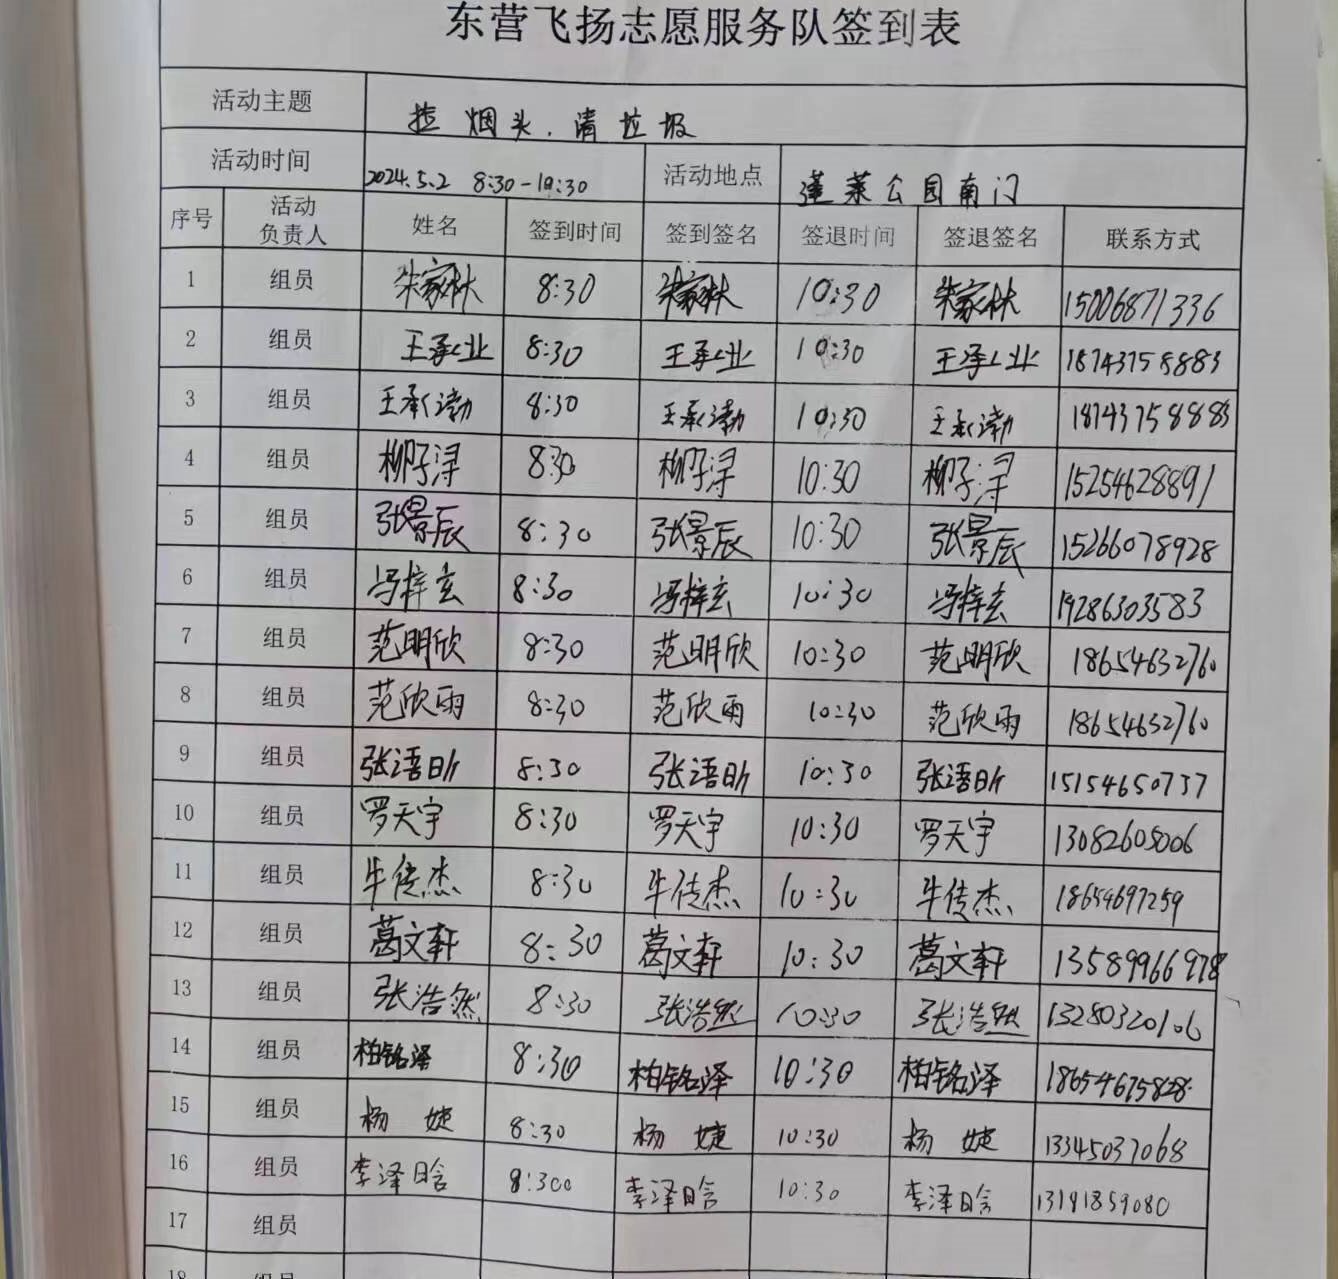 东营飞扬志愿服务队签到表
活动主题 捡烟头.清垃圾
活动时间 2024.5.2 8:30-10:30 活动地点 蓬莱公园南门
序号 活动负责人 姓名 签到时间 签到签名 签退时间 签退签名 联系方式
1 组员 朱家林 8:30 朱家林 10:30 朱家林 15006871336
2 组员 王承业 8:30 王承业 10:30 王承业 18743758883
3 组员 王承渤 8:30 王承渤 10:30 王承渤 18743758883
4 组员 柳子浔 830 柳子浔 10:30 柳子浔 15254628891
5 组员 张景辰 8:30 张景辰 10:30 张景辰 15266078928
6 组员 冯梓玄 8:30 冯梓玄 10:30 冯梓玄 19286303583
7 组员 范明欣 8:30 范明欣 10:30 范明欣 18654632760
8 组员 范欣雨 8:30 范欣雨 10:30 范欣雨 18654632760
9 组员 张语昕 8:30 张语昕 10:30 张语昕 15154650737
10 组员 罗天宇 8:30 罗天宇 10:30 罗天宇 13082605006
11 组员 牛传杰 8:30 牛传杰 10:30 牛传杰 18654697259
12 组员 葛文轩 8:30 葛文轩 10:30 葛文轩 13589966978
13 组员 张浩然 8:30 张浩然 10:30 张浩然 13280320106
14 组员 柏铭泽 8:30 柏铭泽 10:30 柏铭泽 18654675828
15 组员 杨婕 8:30 杨婕 10:30 杨婕 13345037068
16 组员 李泽晗 8:300 李泽晗 10:30 李泽晗 13191859080
17 组员
18 组员